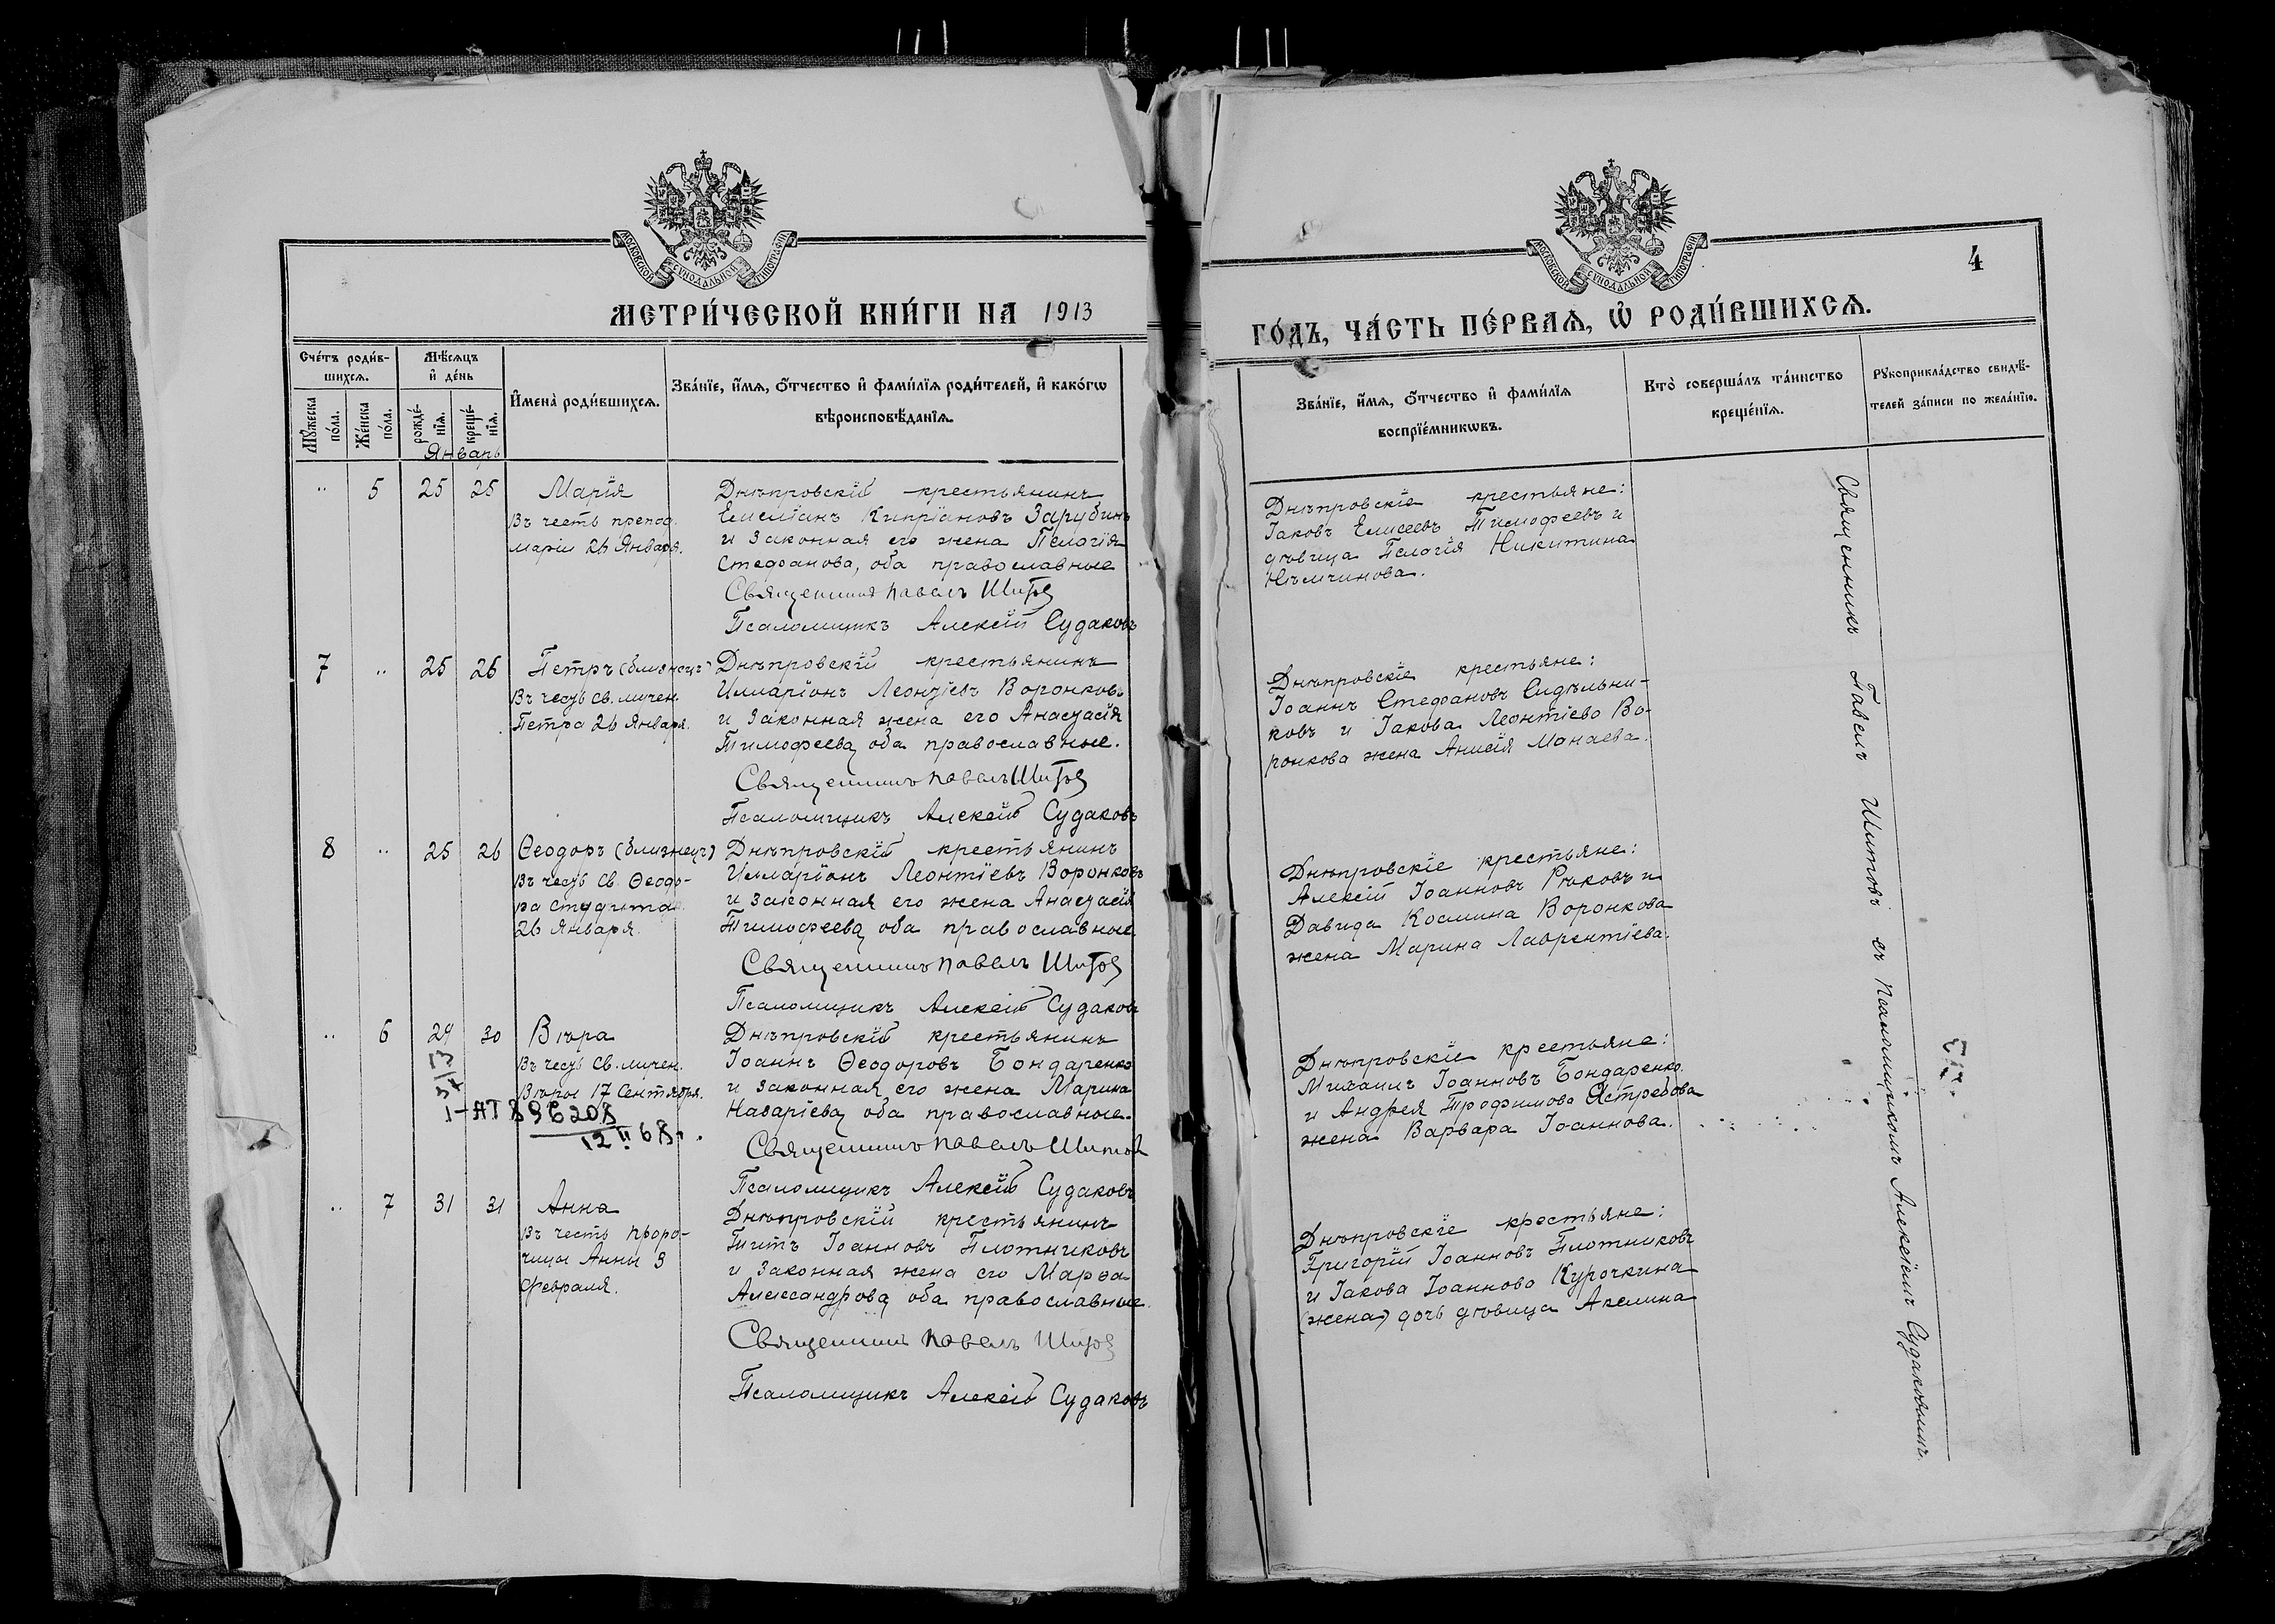 МОСКОВСКОЙ СѴНОДАЛЬНОЙ ТИПОГРАФІИ
МЕТРИ́ЧЕСКОЙ КНИ́ГИ НА 1913
Сче́тъ роди́в-
шихсѧ.
Мѣ́сѧцъ
и҆ де́нь
И҆мена̀ роди́вшихсѧ.
Зва́нїе, и҆́мѧ, ѻ҆́тчество и҆ фами́лїѧ роди́телей, и҆ како́гѡ
вѣроисповѣ́данїѧ.
Мꙋ́жеска
по́ла.
Же́нска
по́ла.
рожде́-
нїѧ.
креще́-
нїѧ.
Январь
" 5 25 25 Марія
Въ честь препод.
Маріи 26 Января.
Днѣпровскій крестьянинъ
Емеліанъ Кипріановъ Зарубинъ
и законная его жена Пелагія
Стефанова, оба православные
Священникъ Павелъ Шитов
Псаломщикъ Алексій Судаковъ
7 " 25 26 Петръ (близнецъ)
Въ честь св. мучен.
Петра 26 Января.
Днѣпровскій крестьянинъ
Илларіонъ Леонтіевъ Воронковъ
и законная жена его Анастасія
Тимофеева, оба православные.
Священникъ Павелъ Шитов
Псаломщикъ Алексій Судаковъ
8 " 25 26 Ѳеодоръ (близнецъ)
Въ честь св. Ѳеодо-
ра Студита
26 Января.
Днѣпровскій крестьянинъ
Илларіонъ Леонтіевъ Воронковъ
и законная его жена Анастасія
Тимофеева, оба православные
Священникъ Павелъ Шитов
Псаломщикъ Алексій Судаковъ
" 6 29 30 Вѣра
Въ честь св. мучен.
Вѣры 17 Сентября.
I-АП 896208
12 II 68 г.
Днѣпровскій крестьянинъ
Іоаннъ Ѳеодоровъ Бондаренко
и законная его жена Марина
Назаріева, оба православные.
Священникъ Павелъ Шитов
Псаломщикъ Алексій Судаковъ
" 7 31 31 Анна
Въ честь проро-
чицы Анны 3
Февраля.
Днѣпровскій крестьянинъ
Титъ Іоанновъ Плотниковъ
и законная жена его Марѳа
Александрова, оба православные.
Священникъ Павелъ Шитов
Псаломщикъ Алексій Судаковъ
МОСКОВСКОЙ СѴНОДАЛЬНОЙ ТИПОГРАФІИ
4
ГО́ДЪ, ЧА́СТЬ ПЕ́РВАѦ, Ѡ҆ РОДИ́ВШИХСѦ.
Зва́нїе, и҆́мѧ, ѻ҆́тчество и҆ фами́лїѧ
воспрїе́мникѡвъ.
Кто̀ соверша́лъ та́инство
креще́нїѧ.
Рꙋкоприкла́дство свидѣ́-
телей за́писи по жела́нїю.
Днѣпровскіе крестьяне:
Іаковъ Елисеевъ Тимофеевъ и
дѣвица Пелагія Никитина
Нѣмчинова.
Днѣпровскіе крестьяне:
Іоаннъ Стефановъ Сидѣльни-
ковъ и Іакова Леонтіева Во-
ронкова жена Анисія Манаева.
Днѣпровскіе крестьяне:
Алексій Іоанновъ Рѣковъ и
Давида Космина Воронкова
жена Марина Лаврентіева.
Днѣпровскіе крестьяне:
Михаилъ Іоанновъ Бондаренко.
и Андрея Трофимова Ястребова
жена Варвара Іоаннова.
Днѣпровскіе крестьяне:
Григорій Іоанновъ Плотниковъ
и Іакова Іоаннова Курочкина
(жена) дочь дѣвица Акелина
Священникъ Павелъ Шитовъ съ Псаломщикомъ Алексіемъ Судаковымъ.